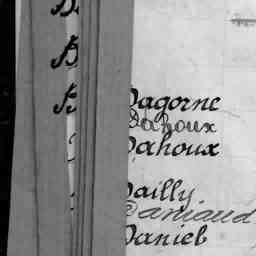 B
B
B
Dagorne
Dahoux
Dahoux
Dailly
Daniaud
Daniel